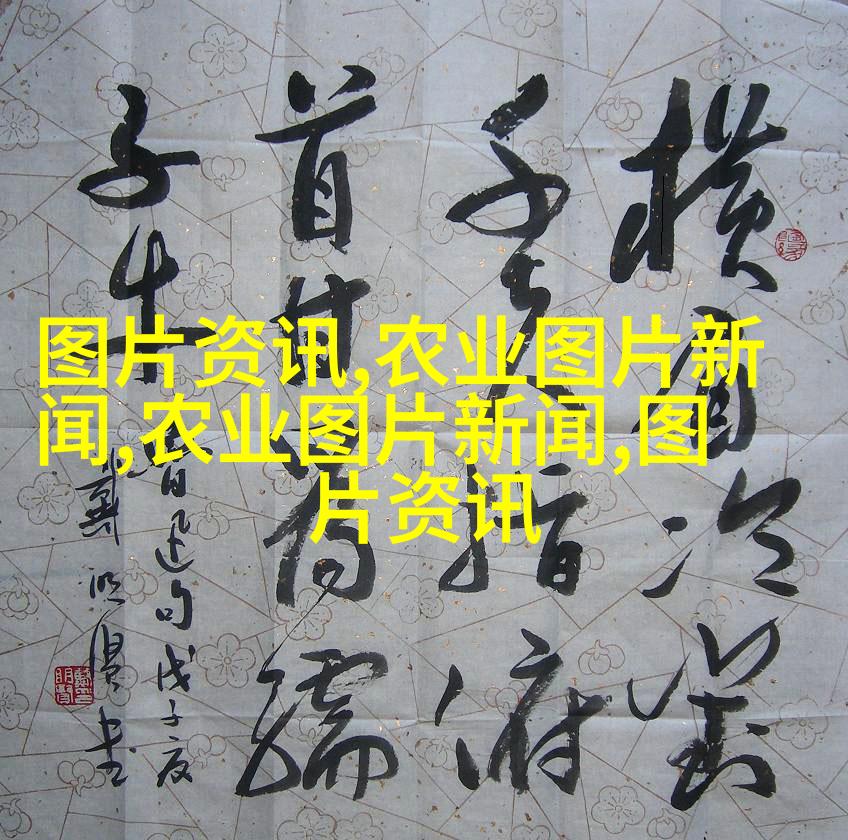 图片资讯,农业图片新
闻,农业图片新闻,图
片资讯
横眉冷對
千夫指俯
首甘為孺
子牛
魯迅句戊子夏